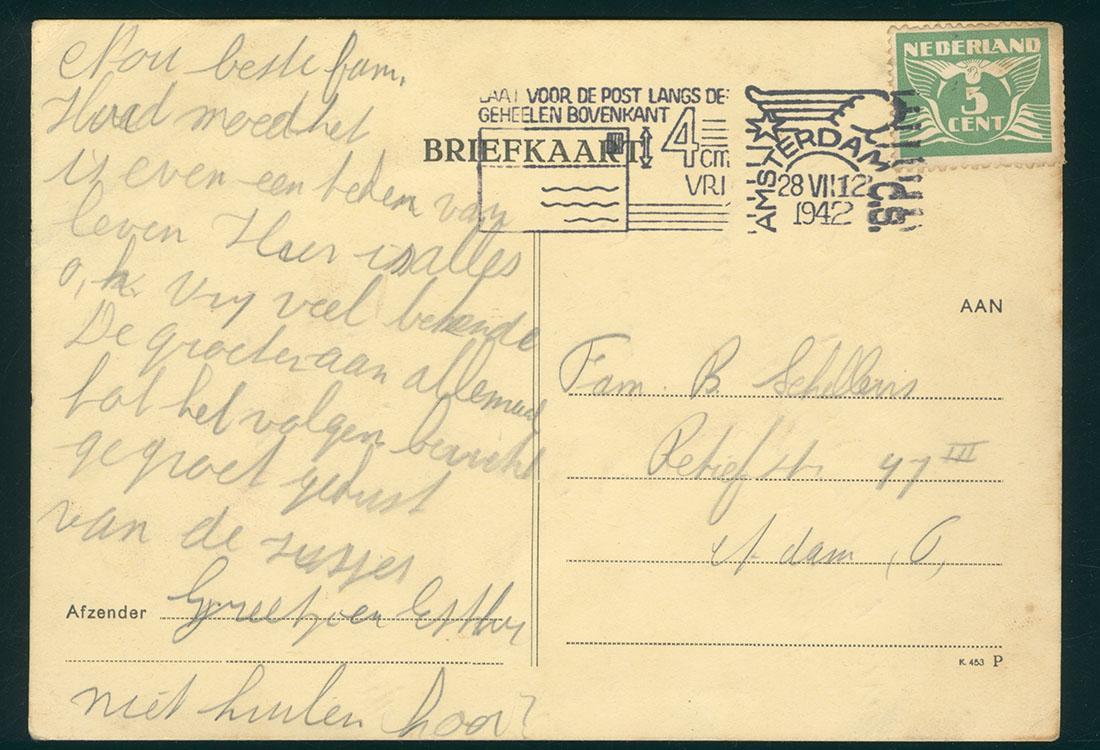 Nou beste fam.
Houd moed het
is even een teken van
leven Hier is alles
o, k. Vrij veel bekende
De groeten aan allemaal
tot het volgen bericht
gegroet gekust
van de zusjes
Afzender Greetje en Esther
niet huilen hoor?
LAAT VOOR DE POST LANGS DE
GEHEELEN BOVENKANT
4 cm
VRI
AMSTERDAM C.S.
28 VII 12
1942
NEDERLAND
5
CENT
BRIEFKAART
AAN
Fam. B. Schellevis
Retiefstr 47 III
A-dam, O,
K. 453 P